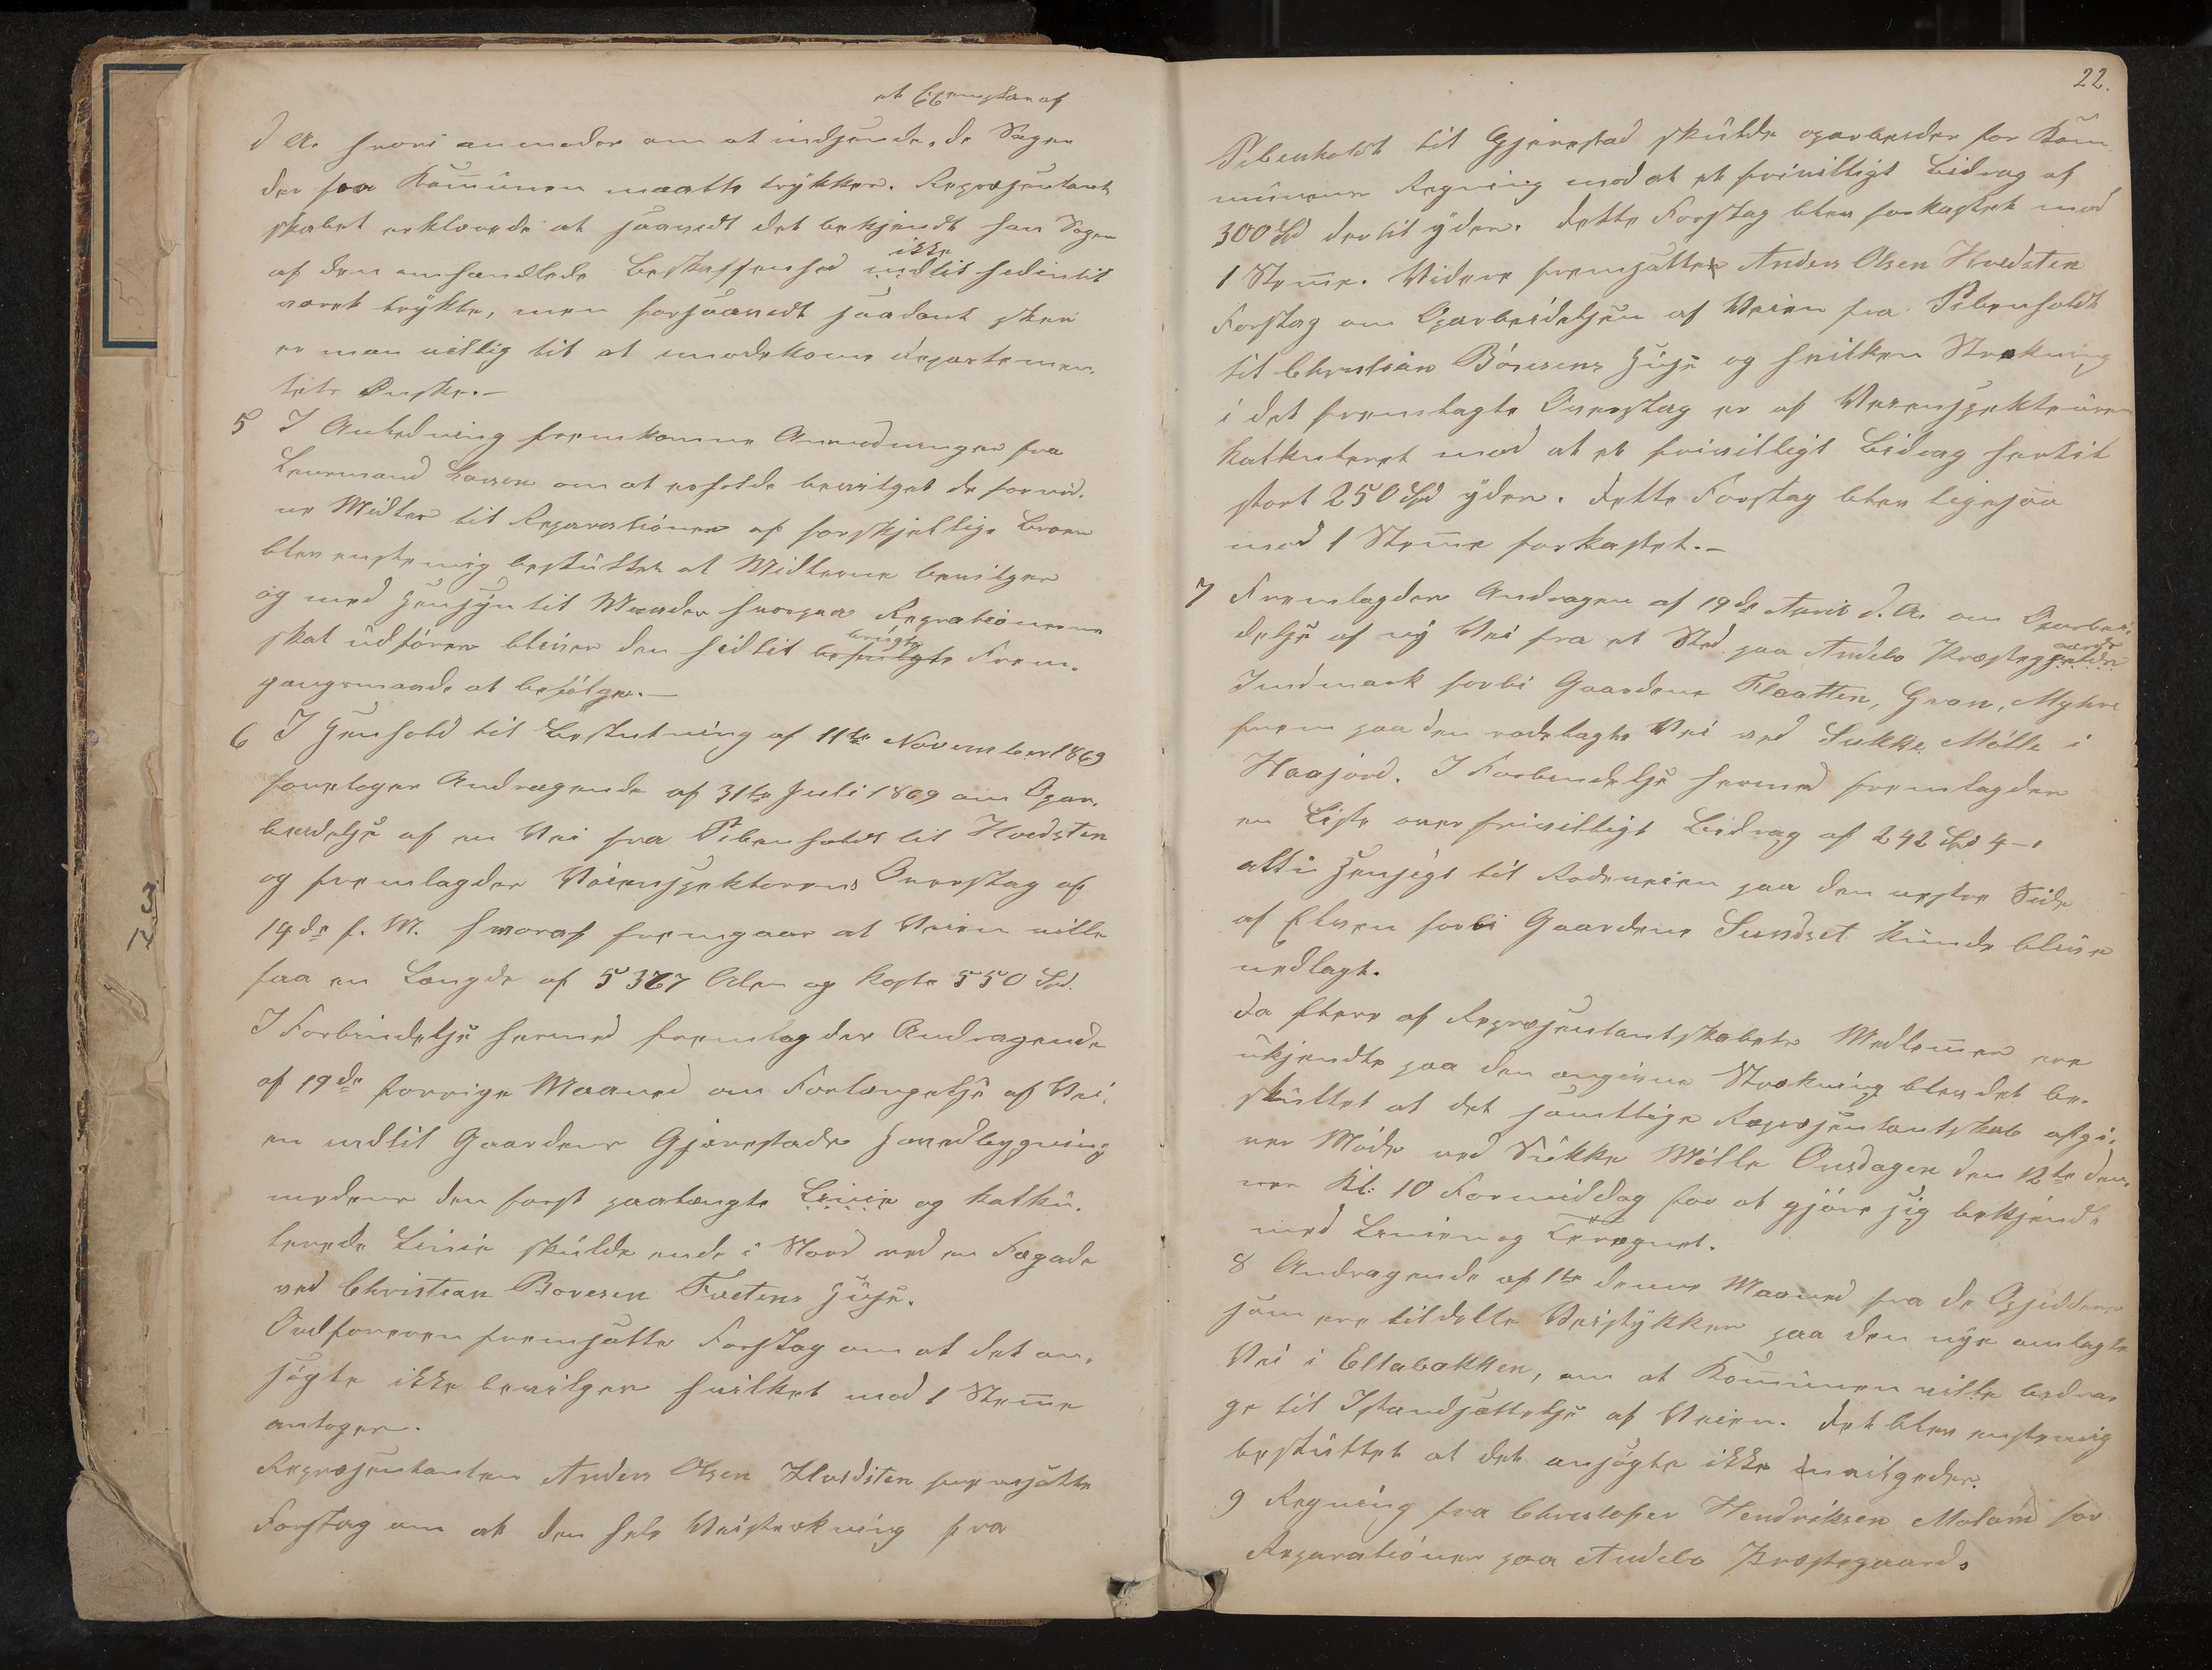 et Exemplar af
d A. hvori anmoder om at indsende, de Sager
der fra Kommunen maatte trykkes. Repræsentant
skabet erklærede at saavidt det bekjendt har Sager
af den omhandlede Beskaffenhed ikke indtil hidintil
været trykte, men forsaavidt saadant skeer
er man villig til at imødekome Departemen,
tets Ønske.-
5 I Anledning fremkomne Anmodninger fra
Leensmand Larsen om at erholde bevilget de fornød,
ne Midler til Reparationer af forskjellige Broer
blev enstemig besluttet at Midlerne bevilges
og med Hensyn til Maaden hvorpaa Reprationerne
skal udføres bliver den hidtil befulgte brugte Frem,
gangsmaade at befølge.-
6 I Henhold til Beslutning af 11te November 1869
foretoges Andragende af 31te Juli 1869 om Opar,
beidelse af en Vei fra Pibenholdt til Hvidsten
og fremlagdes Veiinspektørens Overslag af
14de f. M. hvoraf fremgaar at Veien ville
faa en Længde af 5377 Alen og koste 550 Spd.
I Forbindelse hermed fremlagdes Andragende
af 19de forrige Maaned om Forlængelse af Vei,
en indtil Gaarden Gjerestads Hovedbygning
medens den først paatængte Linie og kalku,
lerede Linie skulde ende i Nord ved en Fægade
ved Christian Bovesen Fætens Huse.
Ordføreren fremsatte Forslag om at det an,
søgte ikke bevilges hvilket mod 1 Stemme
antoges.
Repræsentanten Anders Olsen Hvidsten fremsatte
Forslag om at den hele Veistrækning fra
22.
Pibenholdt til Gjerestad skulde oparbeides for Kom
munens Regning mod at et frivilligt Bidrag af
300 Spd dertil ydes. Dette Forslag blev forkastet mod
1 Stemme. Videre fremsatte Anders Olsen Hvidsten
Forslag om Oparbeidelsen af Veien fra Pibenholdt
til Christian Bovesens Huse og hvilken Strækning
i det fremlagte Overslag er af Veiinspekteuren
kalkuleret mod at et frivilligt Bidrag hertil
stort 250 Spd ydes. Dette Forslag blev ligesaa
mod 1 Stemme forkastet.-
7 Fremlagdes Andragen af 19de April d. A. om Oparbei
delse af ny Vei fra et Sted paa Andebo Præsteg gaards
Indmark forbi Gaardene Flaatten, Gran, Myhre
frem paa den rodelagte Vei ved Sukke Mølle i
Haasjord. I Forbindelse hermed fremlagdes
en Liste over frivilligt Bidrag af 242 Spd 4 -,
alt i Hensigt til Rodeveien paa den vestre Side
af Elven forbi Gaarden Sundset kunde blive
nedlagt.
Da flere af Repræsentantskabets Medlemer ere
ukjendte paa den angivne Strækning blev det be,
sluttet at det samtlige Repræsentantskab afgi,
ver Møde ved Sukke Mølle Onsdagen den 12te den,
nes Kl: 10 Formiddag for at gjøre sig bekjendt
med Linien og Terrænet.
8 Andragende af 1te denne Maaned fra de Opsiddere
som ere tildelte Veistykker paa den nye omlagte
Vei i Ellabakken, om at Kommunen ville bidra,
ge til Istandsættelse af Veien. Det blev enstemig
besluttet at det ansøgte ikke indvilgedes.
9 Regning fra Christofer Hendriksen Moland for
Reparationer paa Andebo Præstegaard.